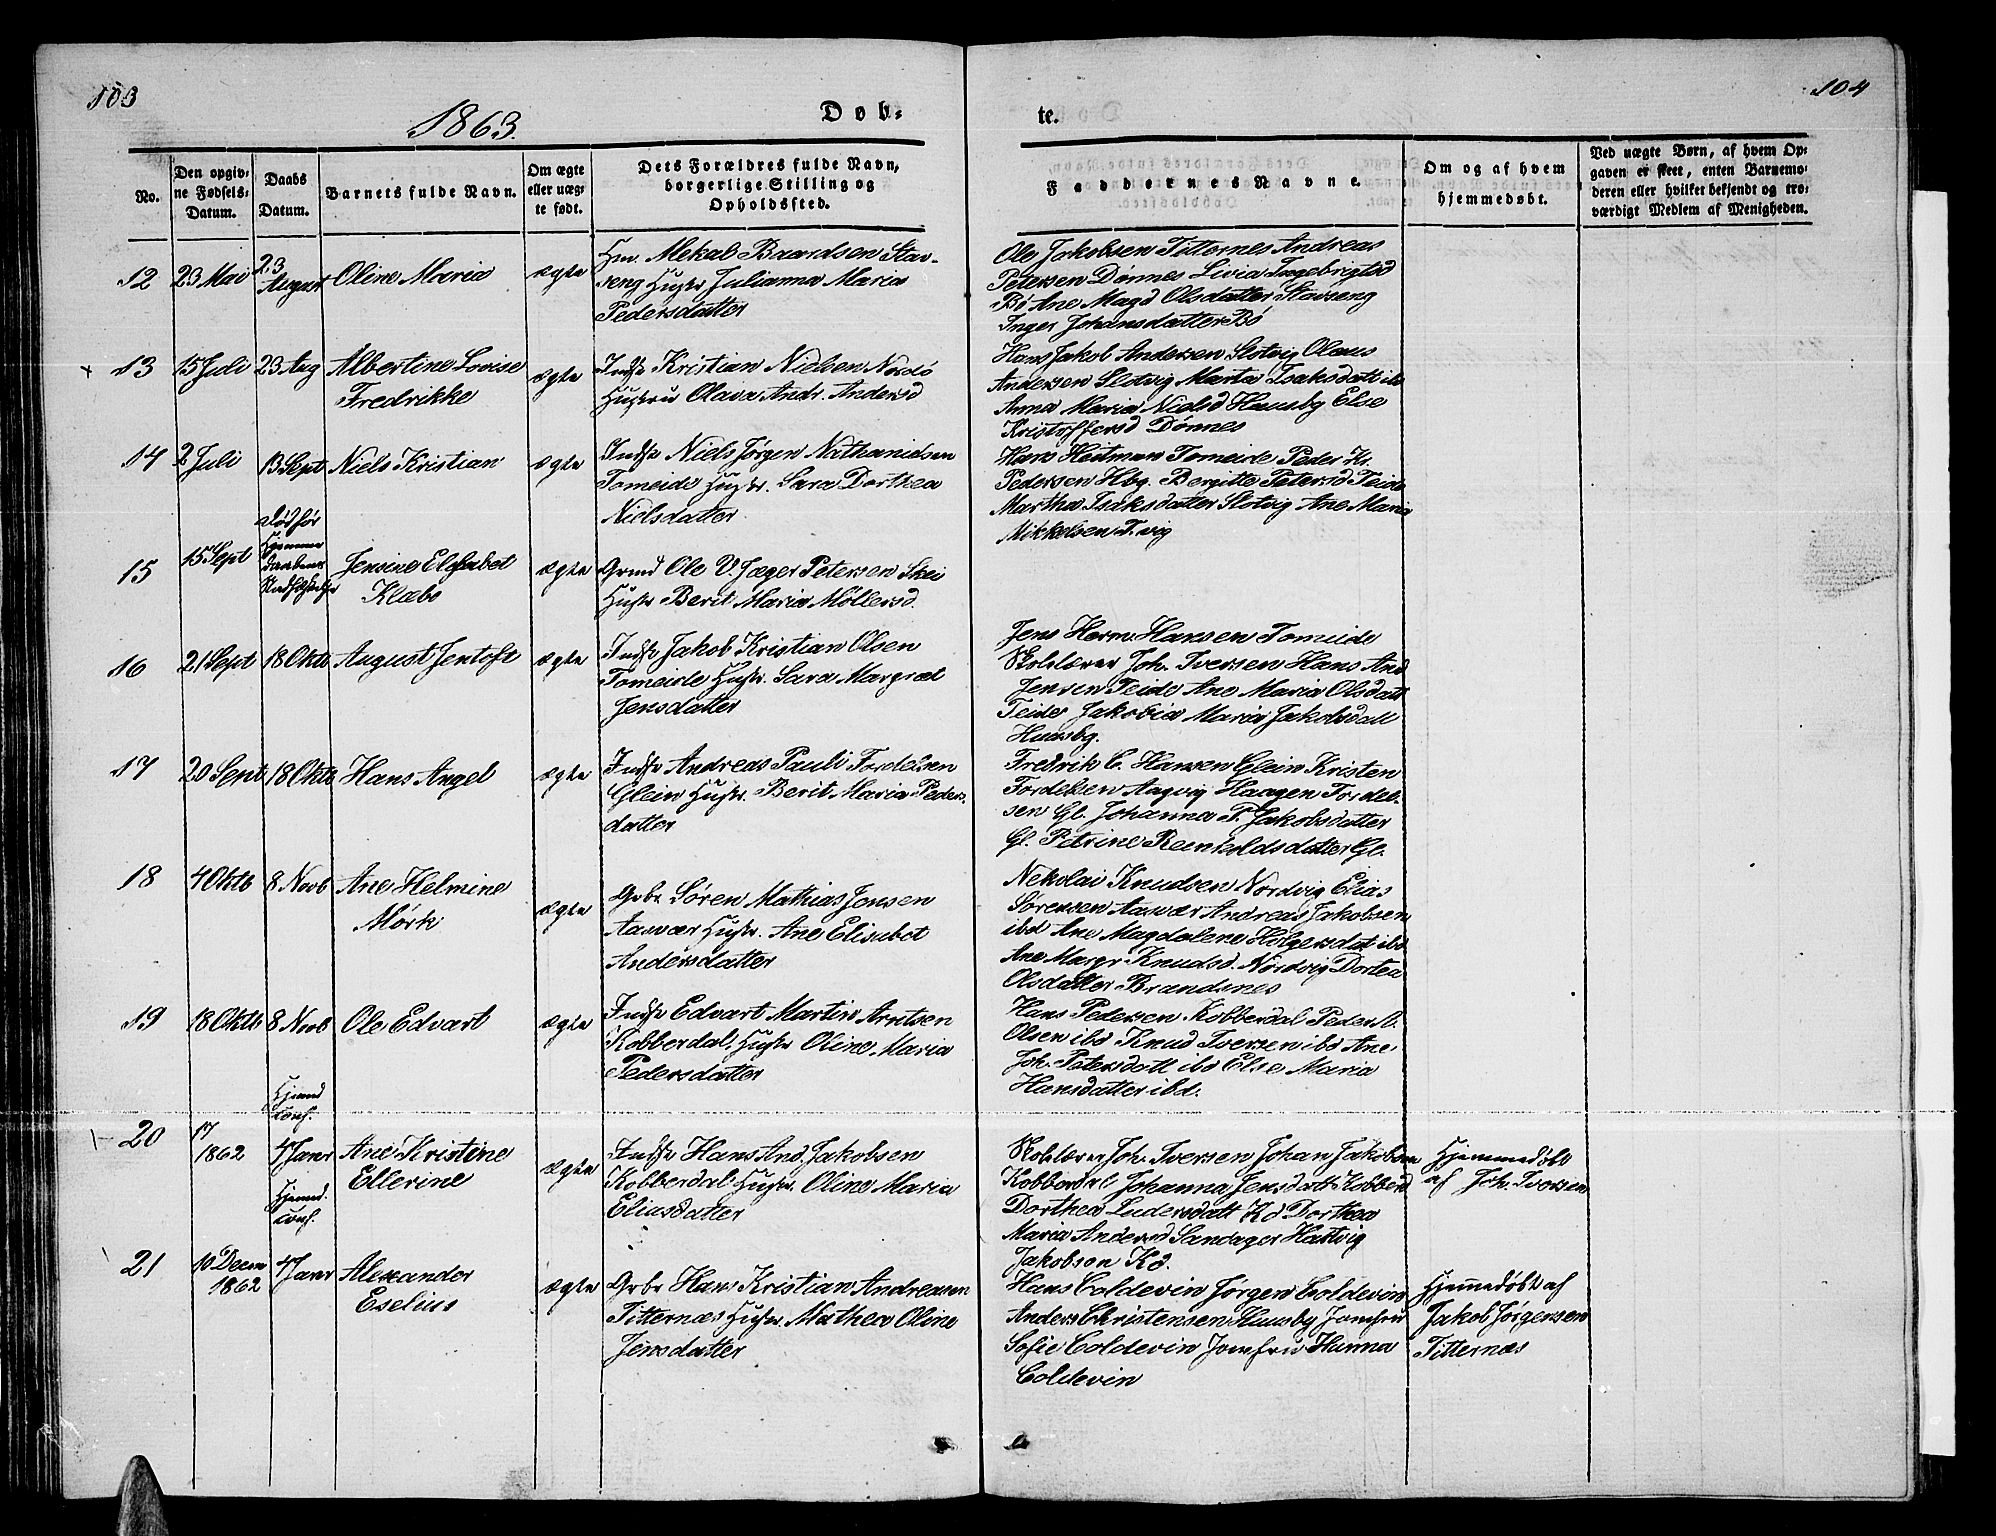 103
104
1863.
Døb-
te.
No.
Den opgiv-
ne Fødsels-
Datum.
Daabs
Datum.
Barnets fulde Navn.
Om ægte
eller uæg-
te født.
Dets Forældres fulde Navn,
borgerlige Stilling og
Opholdssted.
Faddernes Navne.
Om og af hvem
hjemmedøbt.
Ved uægte Børn, af hvem Op-
gaven er skeet, enten Barnemo-
deren eller hvilket bekjendt og tro-
værdigt Medlem af Menigheden.
12
23 Mai
23
August
Oline Maria
ægte
Hm. Mekal Baardsen Stav-
seng Hustr Julianna Maria
Pedersdatter
Ole Jakobsen Titternes Andreas
Petersen Dønnes Livia Ingebrigtsd
Bø Ane Magd Olsdatter Stavseng
Inger Johansdatter Bø
13
15 Juli
23 Aug
Albertine Lovise
Fredrikke
ægte
Indst Kristian Nielsen Nordø
Hustru Olava Andr. Andersd
Hans Jakob Andersen Slotvig Olaus
Andersen Slotvig Marta Isaksdatt ib
Anna Maria Nielsd Huusby Else
Kristoffersd Dønnes
14
2 Juli
13 Sept
Niels Kristian
ægte
Indst Niels Jørgen Nathanielsen
Tomeide Hustr. Sara Dorthea
Nielsdatter
Hans Heitman Tomeide Peder Kr.
Pedersen Hbg. Bergitte Petersd Teide
Martha Isaksdatter Slotvig Ane Maria
Mikkelsen T.vig
15
15 Sept
Død før
Hjemme
daabens
Stadfæstelse
Jensine Elesabet
Klæbo
ægte
Grmd Ole V. Jæger Petersen Skei
Hustr Berit Maria Möllersd.
16
21 Sept
18 Oktb
August Jentoft
ægte
Indst Jakob Kristian Olsen
Tomeide Hustr. Sara Margret
Jensdatter
Jens Herm. Hansen Tomeide
Skolelærer Joh. Iversen Hans And
Jensen Teide Ane Maria Olsdatt
Teide Jakobia Maria Jakobsdatt
Huusbg.
17
20 Sept
18 Oktb
Hans Angel
ægte
Indst Andreas Pauli Tordelsen
Glein Hustr. Berit Maria Peders-
datter
Fredrik C. Hansen Glein Kristen
Tordelsen Aagvig Haagen Tordel-
sen Gl. Johanna P. Jakobsdatter
Gl. Petrine Reinholdsdatter Gl.
18
4 Oktb
8 Novb
Ane Helmine
Mörk
ægte
Grbr Sören Mathias Jensen
Aasvær Hustr. Ane Elisabet
Andersdatter
Nekolai Knudsen Nordvig Elias
Sørensen Aasvær Andreas Jakobsen
ibd Ane Magdalene Holgersdat ibd
Ane Margr Knudsd. Nordvig Dortea
Olsdatter Brandsnes
19
18 Oktb
8 Novb
Ole Edvart
ægte
Indst Edvart Martin Arntsen
Kobberdal. Hustr Oline Maria
Pedersdatter
Hans Pedersen Kobberdal Peder A.
Olsen ibd Knud Iversen ibd Ane
Joh. Petersdatt ibd Else Maria
Hansdatter ibd.
Hjemd
conf.
20
17
1862
4 Janr
Ane Kristine
Ellevine
ægte
Indst Hans And. Jakobsen
Kobberdal Hustr. Oline Maria
Eliasdatter
Skolelærer Joh. Iversen Johan Jakobsen
Kobberdal Johanna Jensdatt Kobberd
Dorthea Ludersdatt Kd Dorthea
Maria Andersd Sandager Hartvig
Jakobson Kd.
Hjemmedøbt
af Joh. Iversen
Hjemd.
conf.
21
10 Decm
1862
4 Janr
Alexander
Eselius
ægte
Grbr Hans Kristian Andreasen
Titternæs Hustr. Mathea Oline
Jensdatter
Hans Coldevin Jørgen Coldevin
Anders Christensen Huusby Jomfru
Sofie Coldevin Jomfru Hanna
Coldevin
Hjemmedøbt af
Jakob Jørgensen
Titternæs